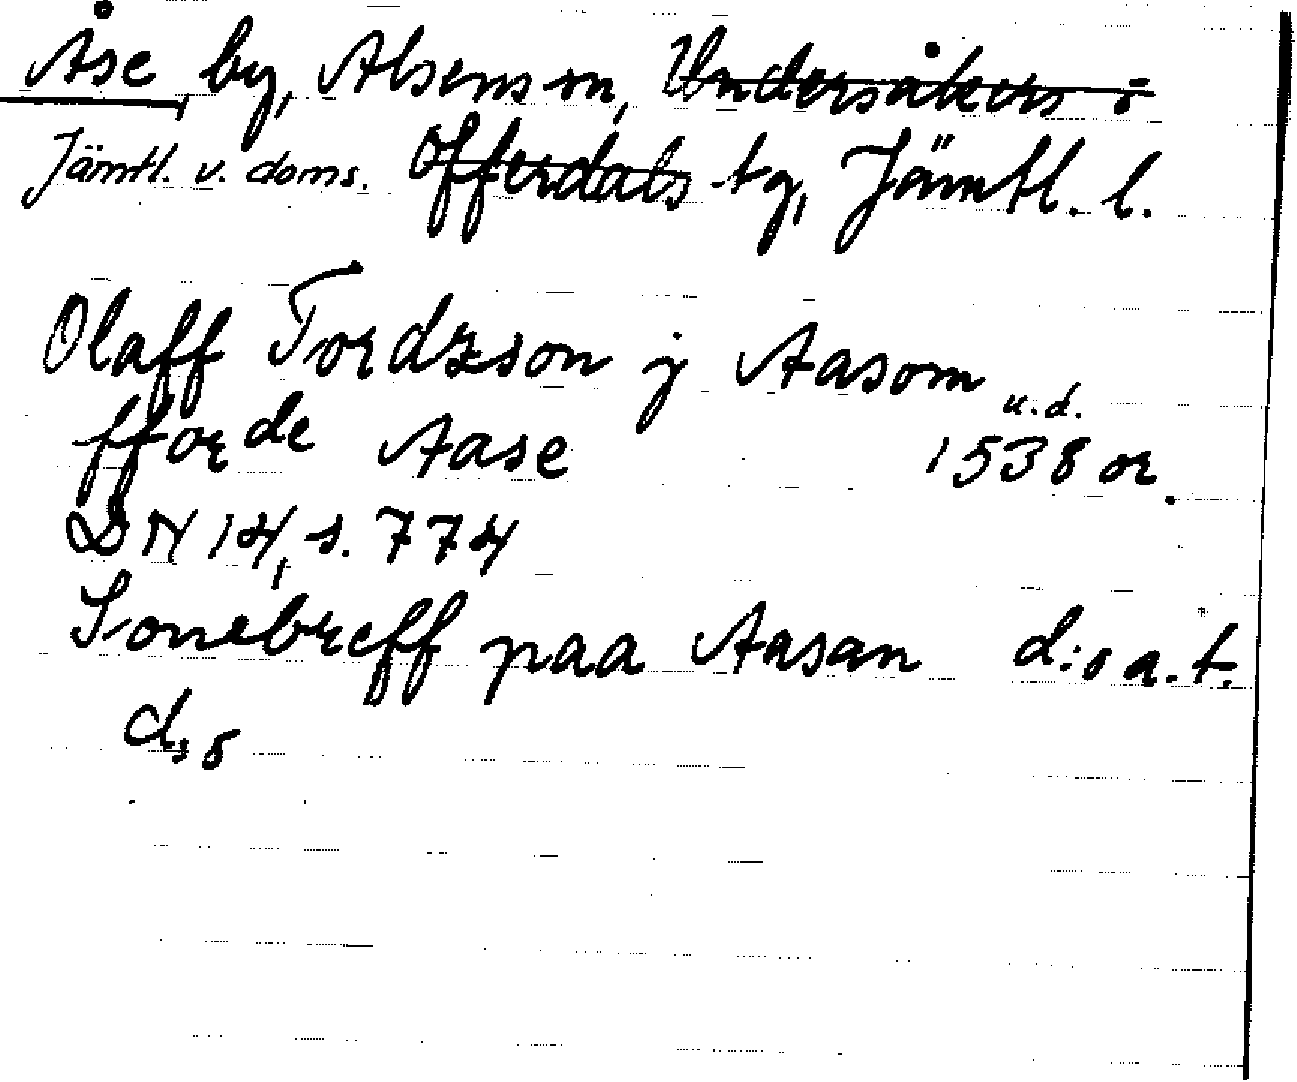 Åse by, Alsens sn, Undersåkers o
Jämtl. v. doms. Offerdals tg, Jämtl. l.
Olaff Tordzson j Aasom
fforde Aase u.d. 1538 or.
DN 14, s. 774
Sonebreff paa Aasan d:o a.t.
d:o